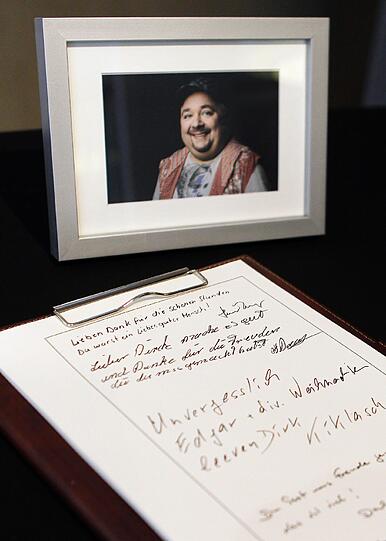 Lieben Dank für die schönen Stunden
Du warst ein lieber guter Mensch!
Lieber Dirk mache es gut
und Danke für die Freuden
die du uns gemacht hast
Unvergesslich
Edgar + div. Weihnachten
leeven Dirk Kiklasch
Du hast uns Freude
das ist viel!